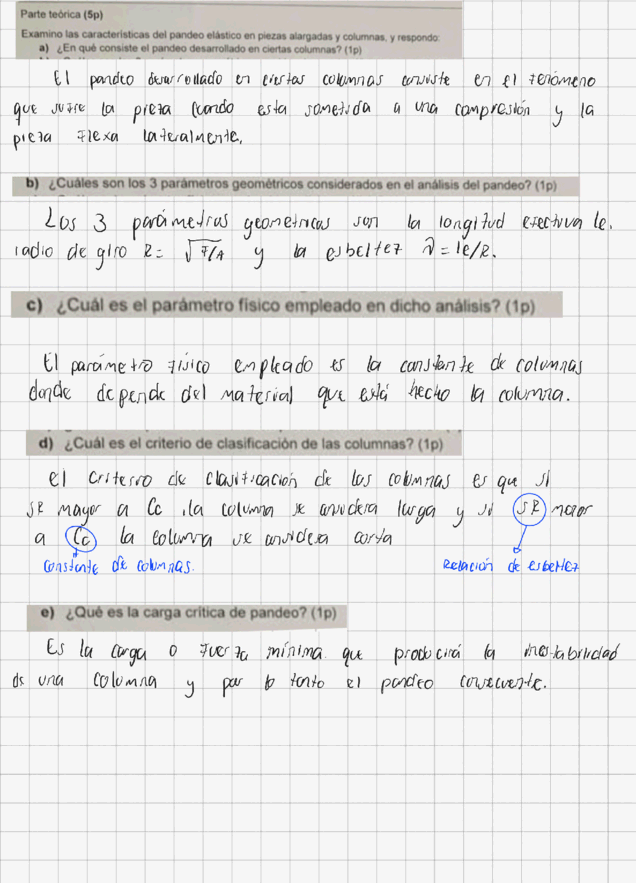 Parte teórica (5p)
Examino las características del pandeo elástico en piezas alargadas y columnas, y respondo:
a) ¿En qué consiste el pandeo desarrollado en ciertas columnas? (1p)
El pandeo desarrollado en ciertas columnas consiste en el fenómeno
que sufre la pieza cuando esta sometida a una compresión y la
pieza flexa lateralmente.
b) ¿Cuáles son los 3 parámetros geométricos considerados en el análisis del pandeo? (1p)
Los 3 parámetros geometricos son la longitud efectiva le,
radio de giro R= √I/A y la esbeltez λ = le/R.
c) ¿Cuál es el parámetro físico empleado en dicho análisis? (1p)
El parámetro físico empleado es la constante de columnas
donde depende del material que está hecho la columna.
d) ¿Cuál es el criterio de clasificación de las columnas? (1p)
el criterio de clasificación de las columnas es que si
SR mayor a Cc, la columna se considera larga y si SR menor
a Cc la columna se considera corta
constante de columnas.
Relación de esbeltez
e) ¿Qué es la carga crítica de pandeo? (1p)
Es la carga o fuerza mínima que producirá la inestabilidad
de una columna y por lo tanto el pandeo consecuente.